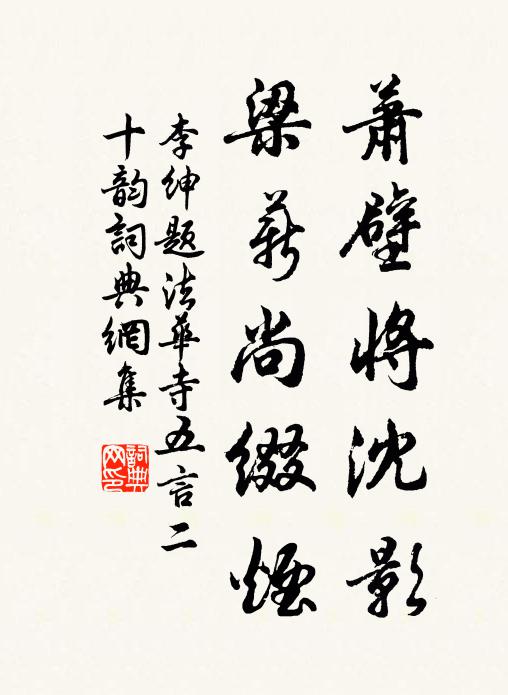 蕭壁將沈影
梁薪尚綴煙
李紳題法華寺五言二
十韵詞典網集
詞典
网印